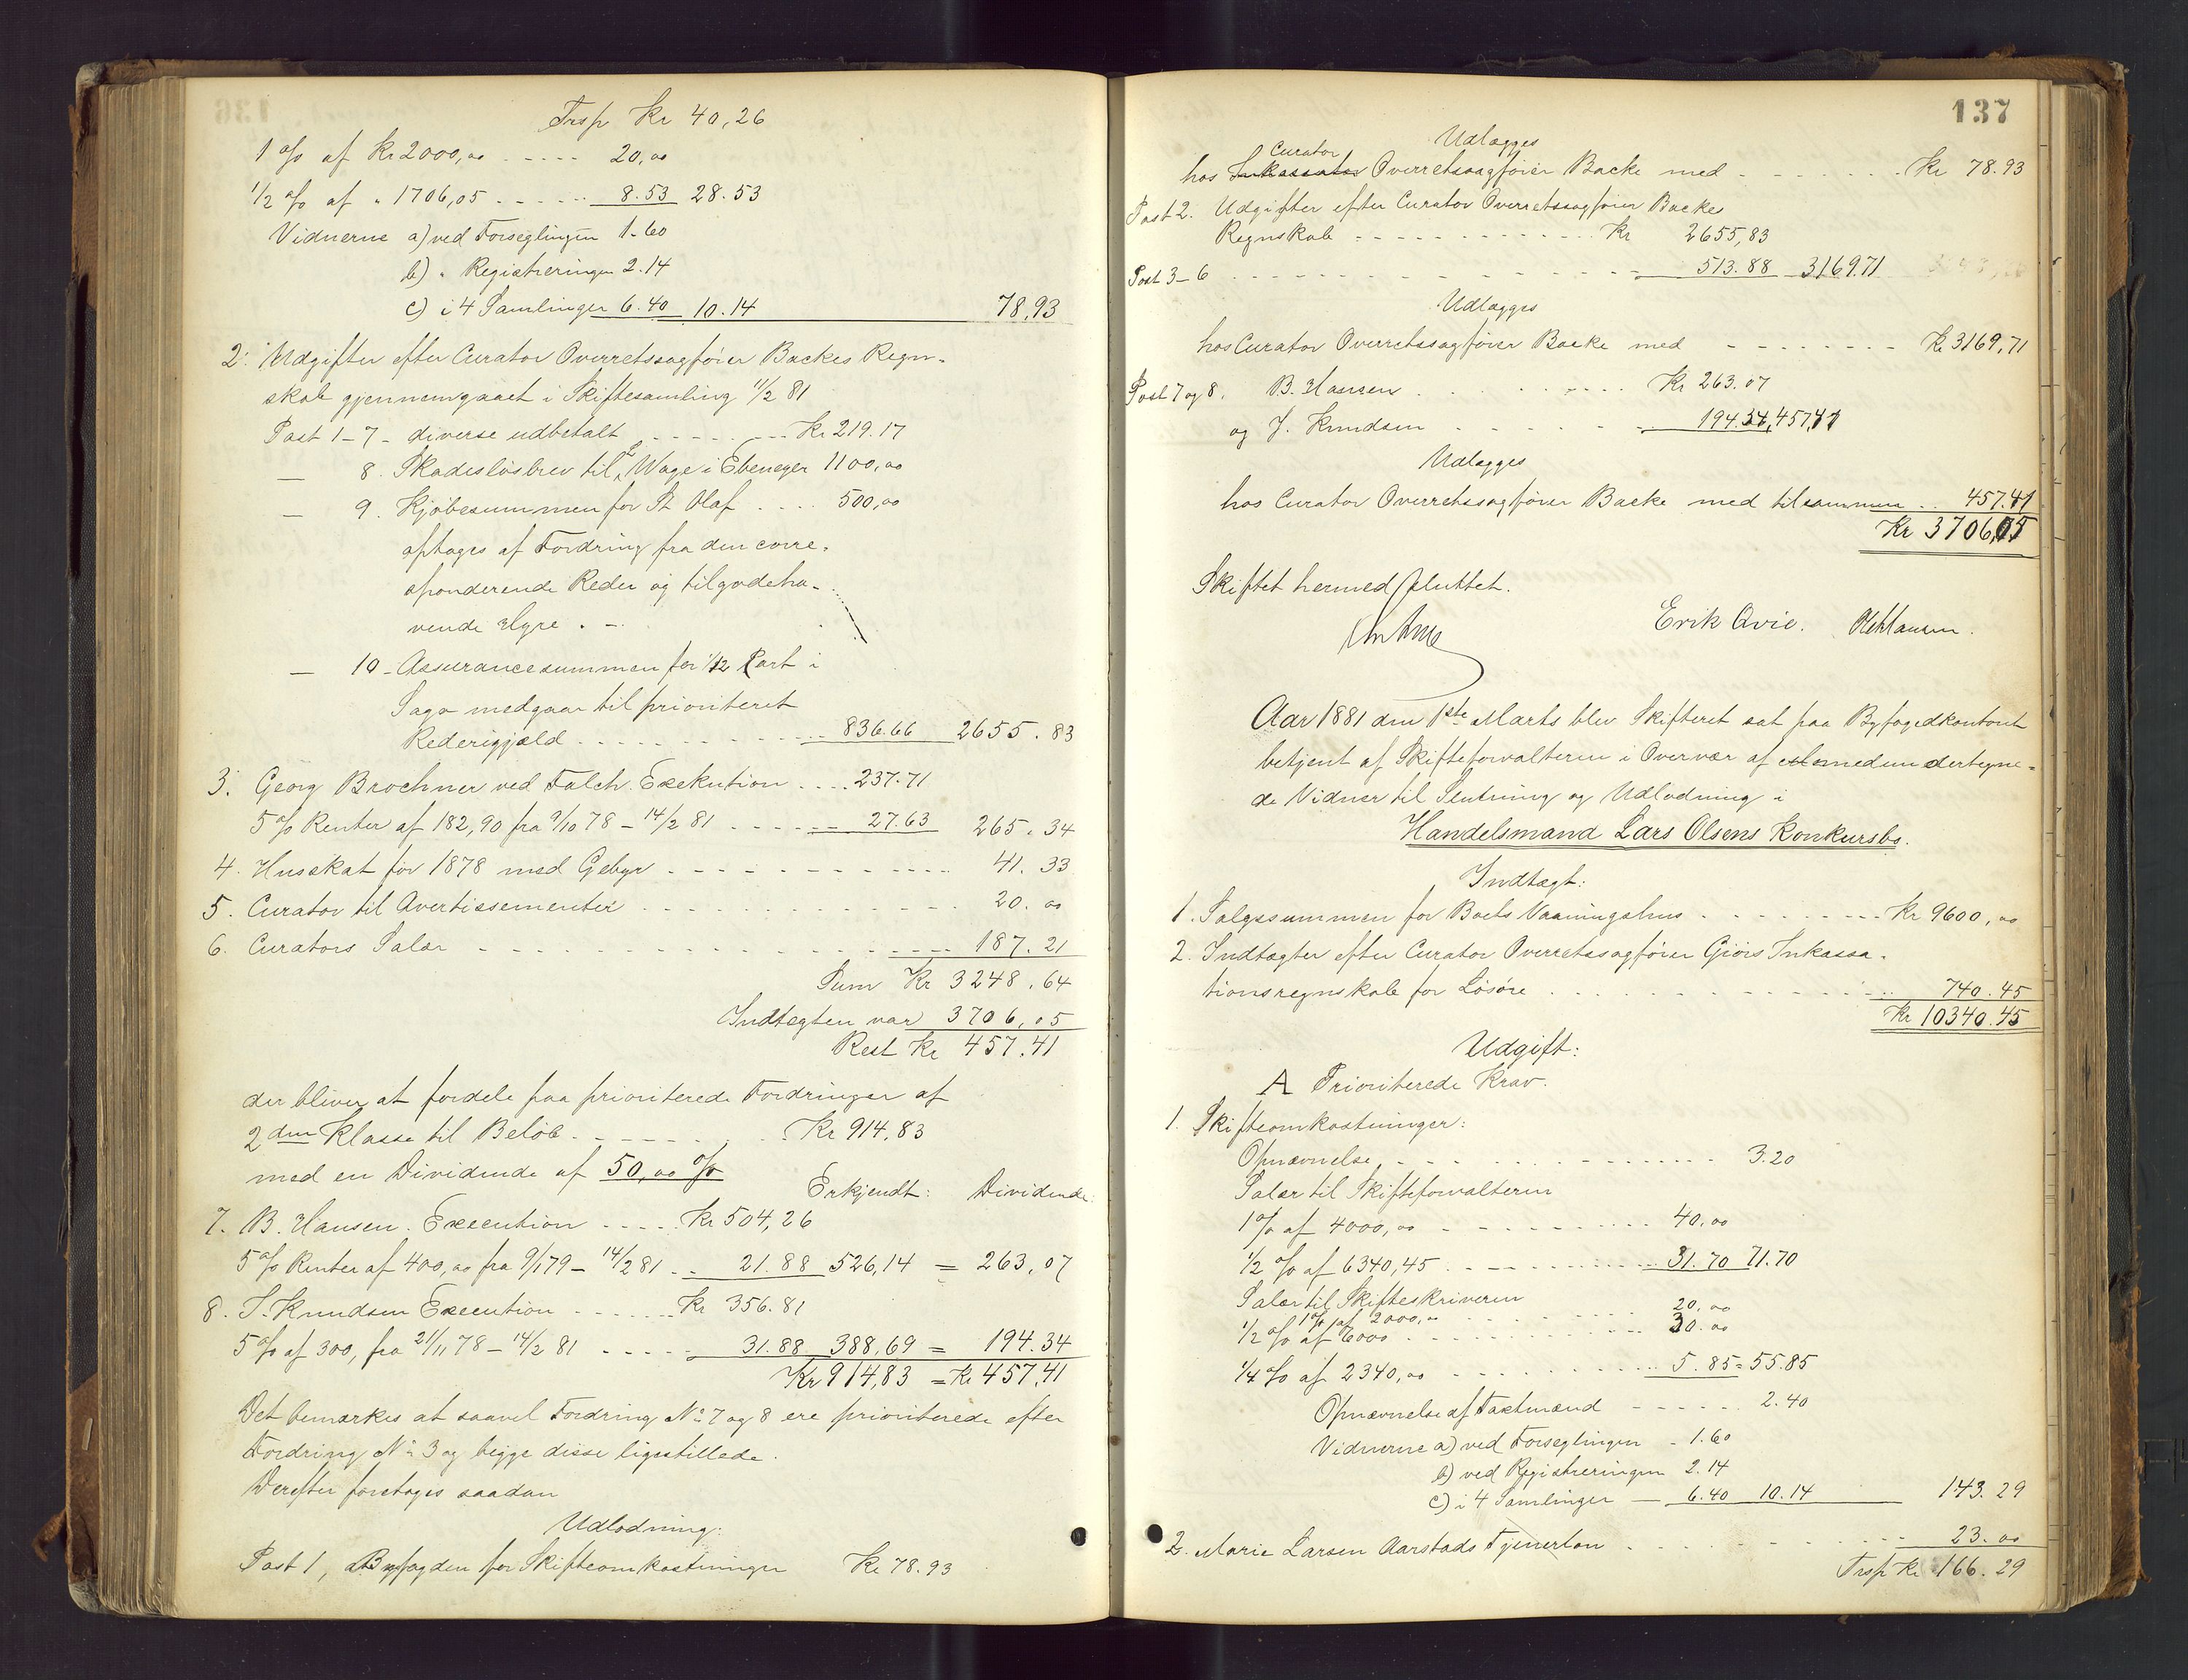 Trsp Kr 40,26
1 % af Kr 2000,00 . . . . . 20,00
1/2 % af " 1706,05 . . . . . 8.53 28.53
Vidnerne a) ved Forseglingen 1.60
b) " Registreringen 2.14
c) i 4 Samlinger 6.40 10.14 78,93
2. Udgifter efter Curator Overretssagfører Backes Regn-
skab gjennemgaaet i Skiftesamling 11/2 81
Post 1-7 - diverse udbetalt . . . . Kr 219.17
— 8. Skadesløsbrev til Wage i Ebenezer 1100,00
— 9. Kjøbesummen for St Olaf . . . . 500,00
optages af Fordring fra den corre-
sponderende Reder og tilgodeha-
vende Hyre . -
— 10 - Assurancesummen for 1/12 Part i
Saga medgaar til prioriteret
Rederigjæld . . . . . 836.66 2655.83
3. Georg Brochner ved Falch. Exekution . . . . 237.71
5 % Renter af 182,90 fra 9/10 78 - 14/2 81 . . . . 27.63 265.34
4. Husskat for 1878 med Gebyr . . . . . 41.33
5. Curator til Avertissementer . . . . . 20.00
6. Curators Salær . . . . . 187.21
Sum Kr 3248.64
Indtægten var 3706,05
Rest Kr 457.41
der bliver at fordele paa prioriterede Fordringer af
2den Klasse til Beløb . . . . . Kr 914,83
med en Dividende af 50,00 %
Erkjendt: Dividende:
7. B. Hansen. Execution . . . . Kr 504,26
5 % Renter af 400,00 fra 9/1 79 - 14/2 81 . . 21.88 526,14 = 263,07
8. J. Knudsen Execution . . . . Kr 356.81
5 % af 300, fra 21/11 78 - 14/2 81 . . . . 31.88 388,69 = 194.34
Kr 914,83 = Kr 457,41
Det bemærkes at saavel Fordring No 7 og 8 ere prioriterede efter
Fordring No 3 og begge disse ligestillede.
Derefter foretoges saadan
Udlodning:
Post 1, Byfogden for Skifteomkostninger Kr 78.93
137
Udlægges
Curator
hos Inkassator Overretssagfører Backe med . . . . . Kr 78.93
Post 2. Udgifter efter Curator Overretssagfører Backes
Regnskab . . . . . Kr 2655,83
Post 3-6 . . . . . 513.88 3169.71
Udlægges
hos Curator Overretssagfører Backe med . . . . . Kr 3169,71
Post 7 og 8. B. Hansen . . . . . Kr 263.07
og J. Knudsen . . . . . 194.34, 457,41
Udlægges
hos Curator Overretssagfører Backe med tilsammen . . 457.41
Kr 3706,05
Skiftet hermed sluttet.
Erik Qvie.
Aar 1881 den 1ste Marts blev Skifteret sat paa Byfogedkontoret
betjent af Skifteforvalteren i Overvær af medundertegne-
de Vidner til Slutning og Udlodning i
Handelsmand Lars Olsens Konkursbo.
Indtægt:
1. Salgssummen for Boets Vaaningshus . . . . . Kr 9600,00
2. Indtægter efter Curator Overretssagfører Giørs Inkassa-
tionsregnskab for Løsøre . . . . . 740.45
Kr 10340.45
Udgift:
A Prioriterede Krav.
1. Skifteomkostninger:
Opnævnelse . . . . . 3.20
Salær til Skifteforvalteren
1 % af 4000,00 . . . . . 40,00
1/2 % af 6340,45 . . . . . 31.70 71.70
Salær til Skifteskriveren
1 % af 2000,00 . . . . . 20,00
1/2 % af 6000 . . . . . 30.00
1/4 % af 2340,00 . . . . . 5.85 = 55.85
Opnævnelse af Taxtmænd . . . . . 2.40
Vidnerne a) ved Forseglingen - 1.60
b) ved Registreringen 2.14
c) i 4 Samlinger — 6.40 10.14 143.29
2. Marie Larsen Aarstads Tjenerløn . . . . . 23.00
Trsp Kr 166.29